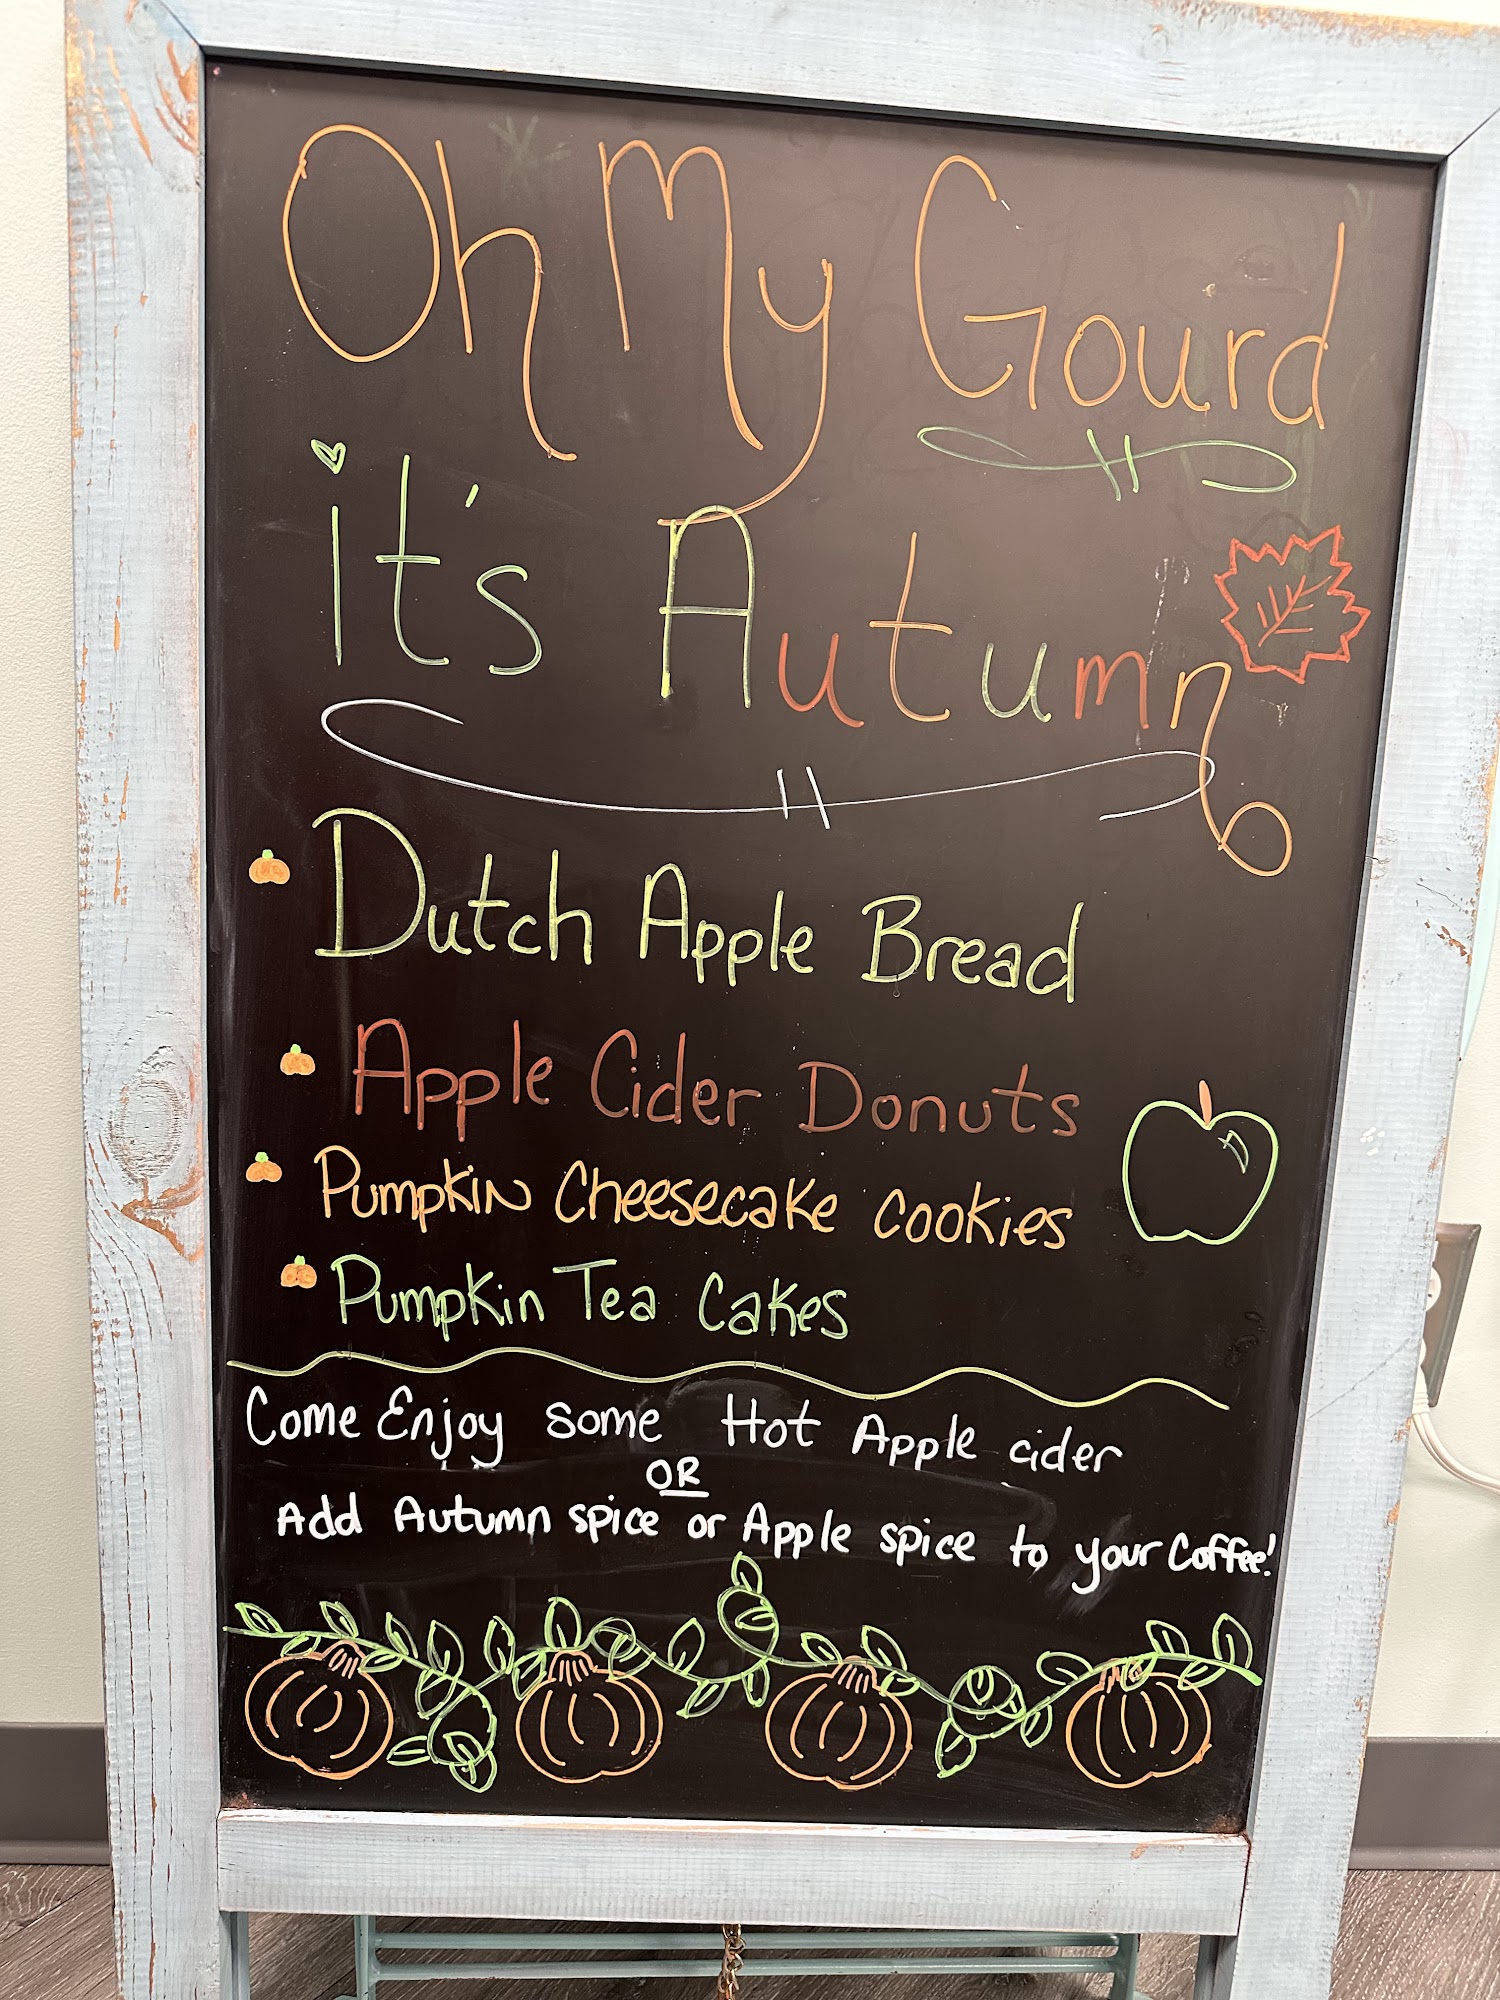 Oh My Gourd
it's Autumn
Dutch Apple Bread
Apple Cider Donuts
Pumpkin Cheesecake Cookies
Pumpkin Tea Cakes
Come Enjoy some Hot Apple cider
OR
Add Autumn spice or Apple spice to your Coffee!